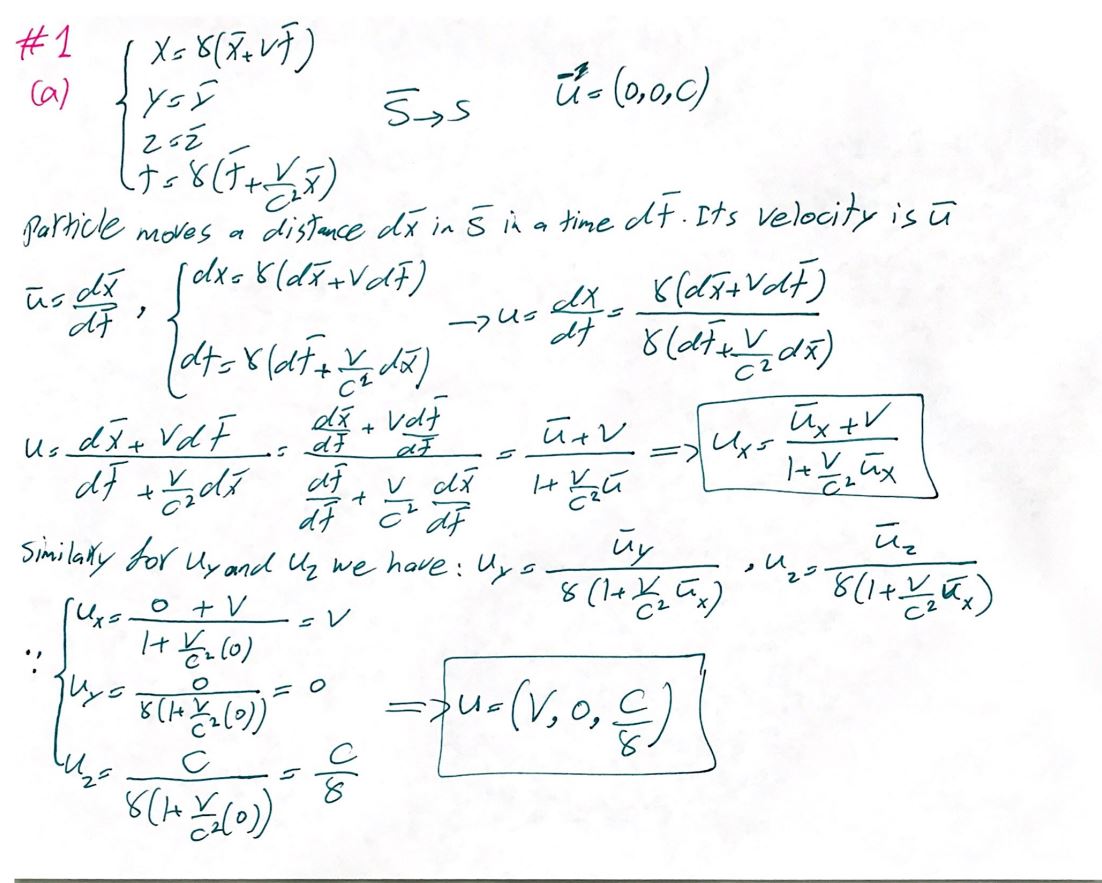 #1
(a)
x = γ(x̄ + vt̄)
y = ȳ
z = z̄
t = γ(t̄ + v/c² x̄)
S̄ → S
ū = (0,0,c)
Particle moves a distance dx̄ in S̄ in a time dt̄. Its velocity is ū
ū = dx̄/dt̄ , { dx = γ(dx̄ + v dt̄) dt = γ(dt̄ + v/c² dx̄) → u = dx/dt = γ(dx̄ + v dt̄) / γ(dt̄ + v/c² dx̄)
u = (dx̄ + v dt̄) / (dt̄ + v/c² dx̄) = (dx̄/dt̄ + v dt̄/dt̄) / (dt̄/dt̄ + v/c² dx̄/dt̄) = (ū + v) / (1 + v/c² ū) ⇒ uₓ = (ūₓ + v) / (1 + v/c² ūₓ)
Similarly for u_y and u_z we have: u_y = ū_y / γ(1 + v/c² ūₓ) , u_z = ū_z / γ(1 + v/c² ūₓ)
∵ uₓ = (0 + v) / (1 + v/c² (0)) = v
u_y = 0 / γ(1 + v/c² (0)) = 0
u_z = c / γ(1 + v/c² (0)) = c/γ
⇒ u = (v, 0, c/γ)